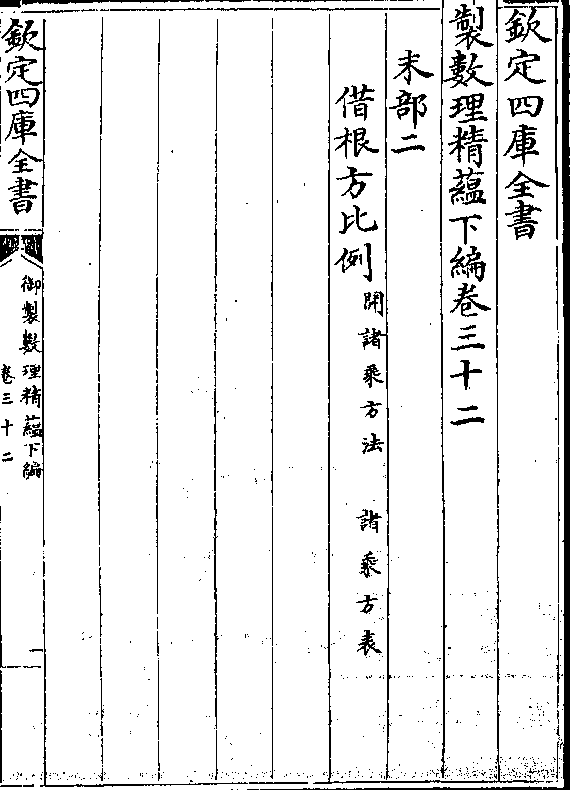 欽定四庫全書
製數理精蘊下編卷三十二
末部二
借根方比例 開諸乘方法 諸乘方表
欽定四庫全書
御製數理精蘊下編
卷三十二
一